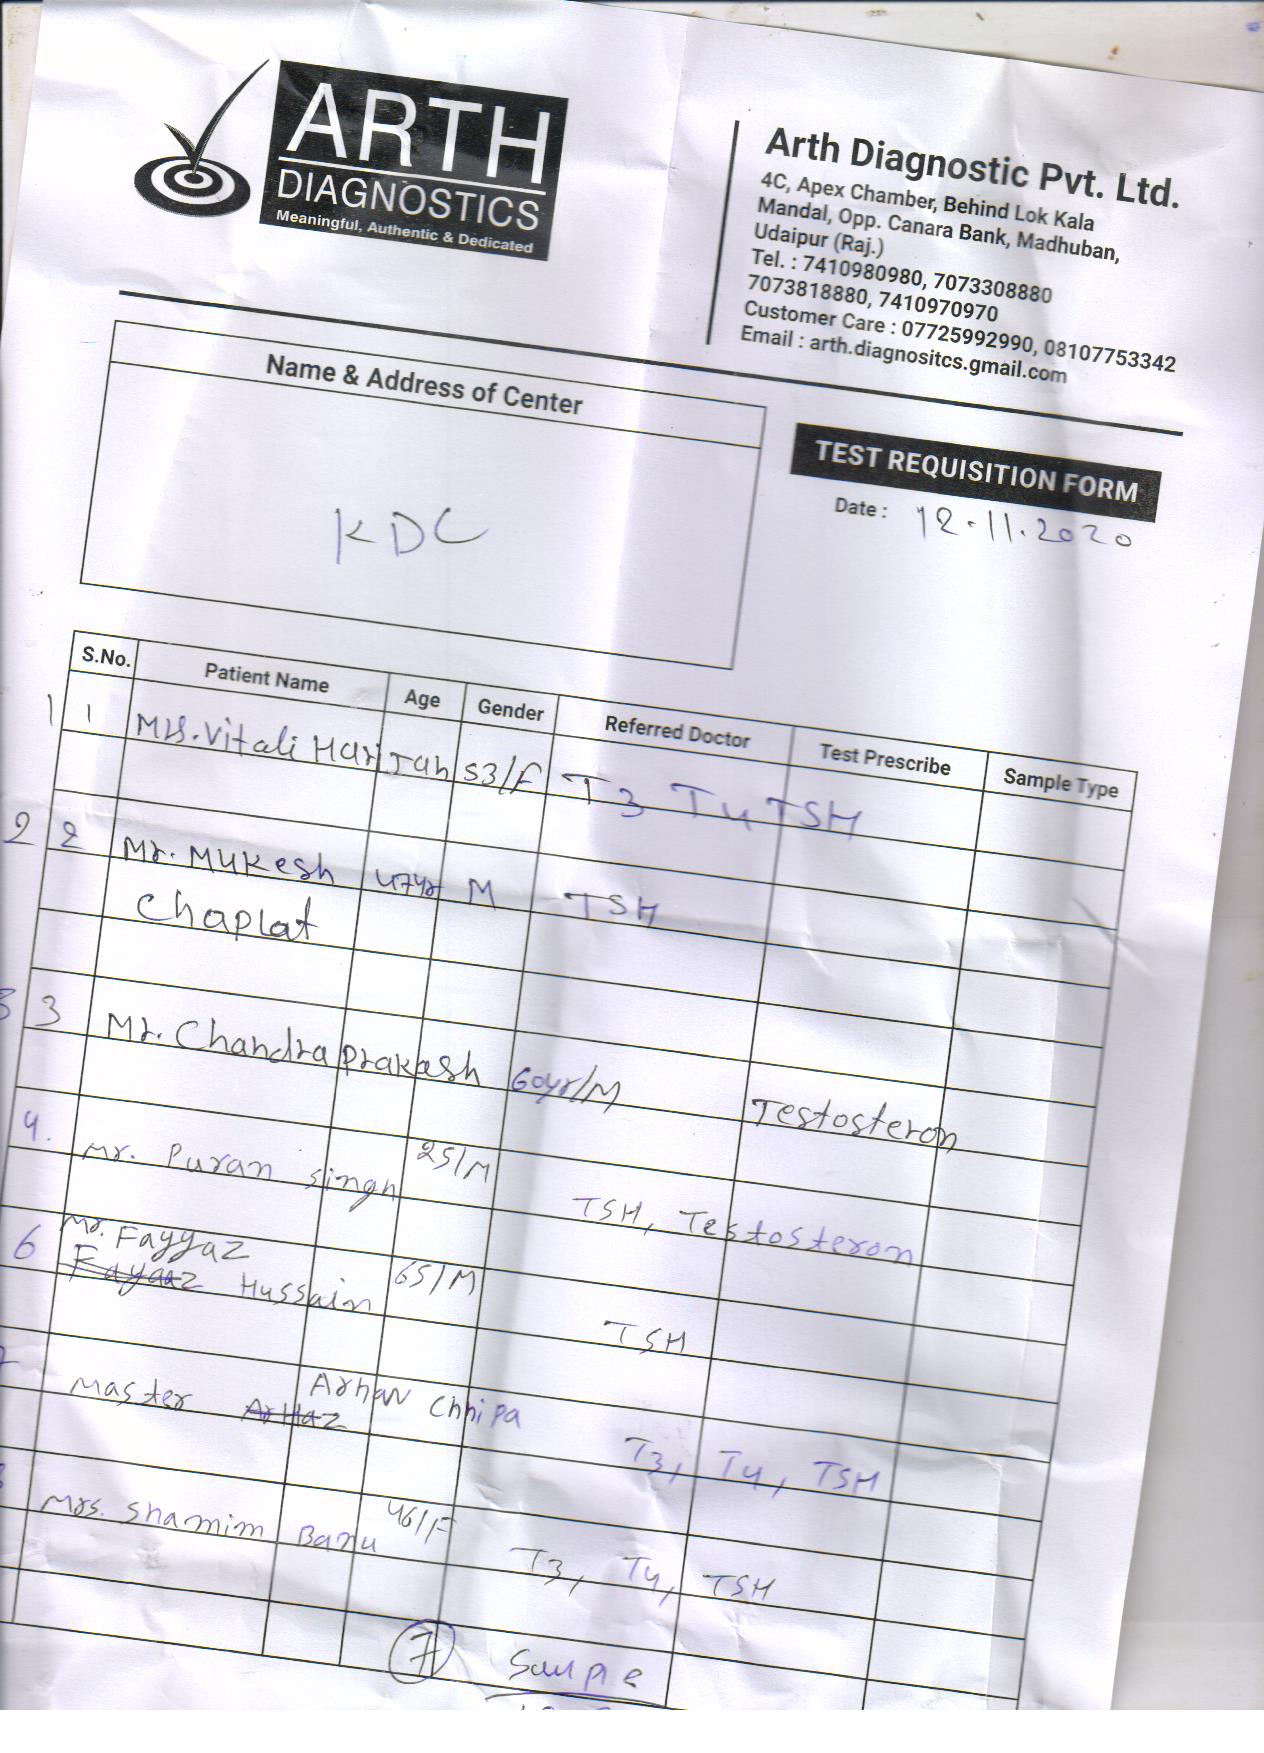 ARTH
DIAGNOSTICS
Meaningful, Authentic & Dedicated
Arth Diagnostic Pvt. Ltd.
4C, Apex Chamber, Behind Lok Kala
Mandal, Opp. Canara Bank, Madhuban,
Udaipur (Raj.)
Tel. : 7410980980, 7073308880
7073818880, 7410970970
Customer Care : 07725992990, 08107753342
Email : arth.diagnositcs.gmail.com
Name & Address of Center
KDC
TEST REQUISITION FORM
Date : 12.11.2020
S.No. Patient Name Age Gender Referred Doctor Test Prescribe Sample Type
1 1 Mrs. Vitali Harijan 53/F T3 T4 TSH
2 2 Mr. Mukesh 47yr M TSH
Chaplat
3 3 Mr. Chandra Prakash 60yr/M Testosteron
4. Mr. Puran Singh 25/M TSH, Testosteron
6 Mr. Fayyaz
Fayaaz Hussain 65/M TSH
7 Master Arhaz Arhan Chhipa T3, T4, TSH
8 Mrs. Shamim Banu 46/F T3, T4, TSH
7 Sample